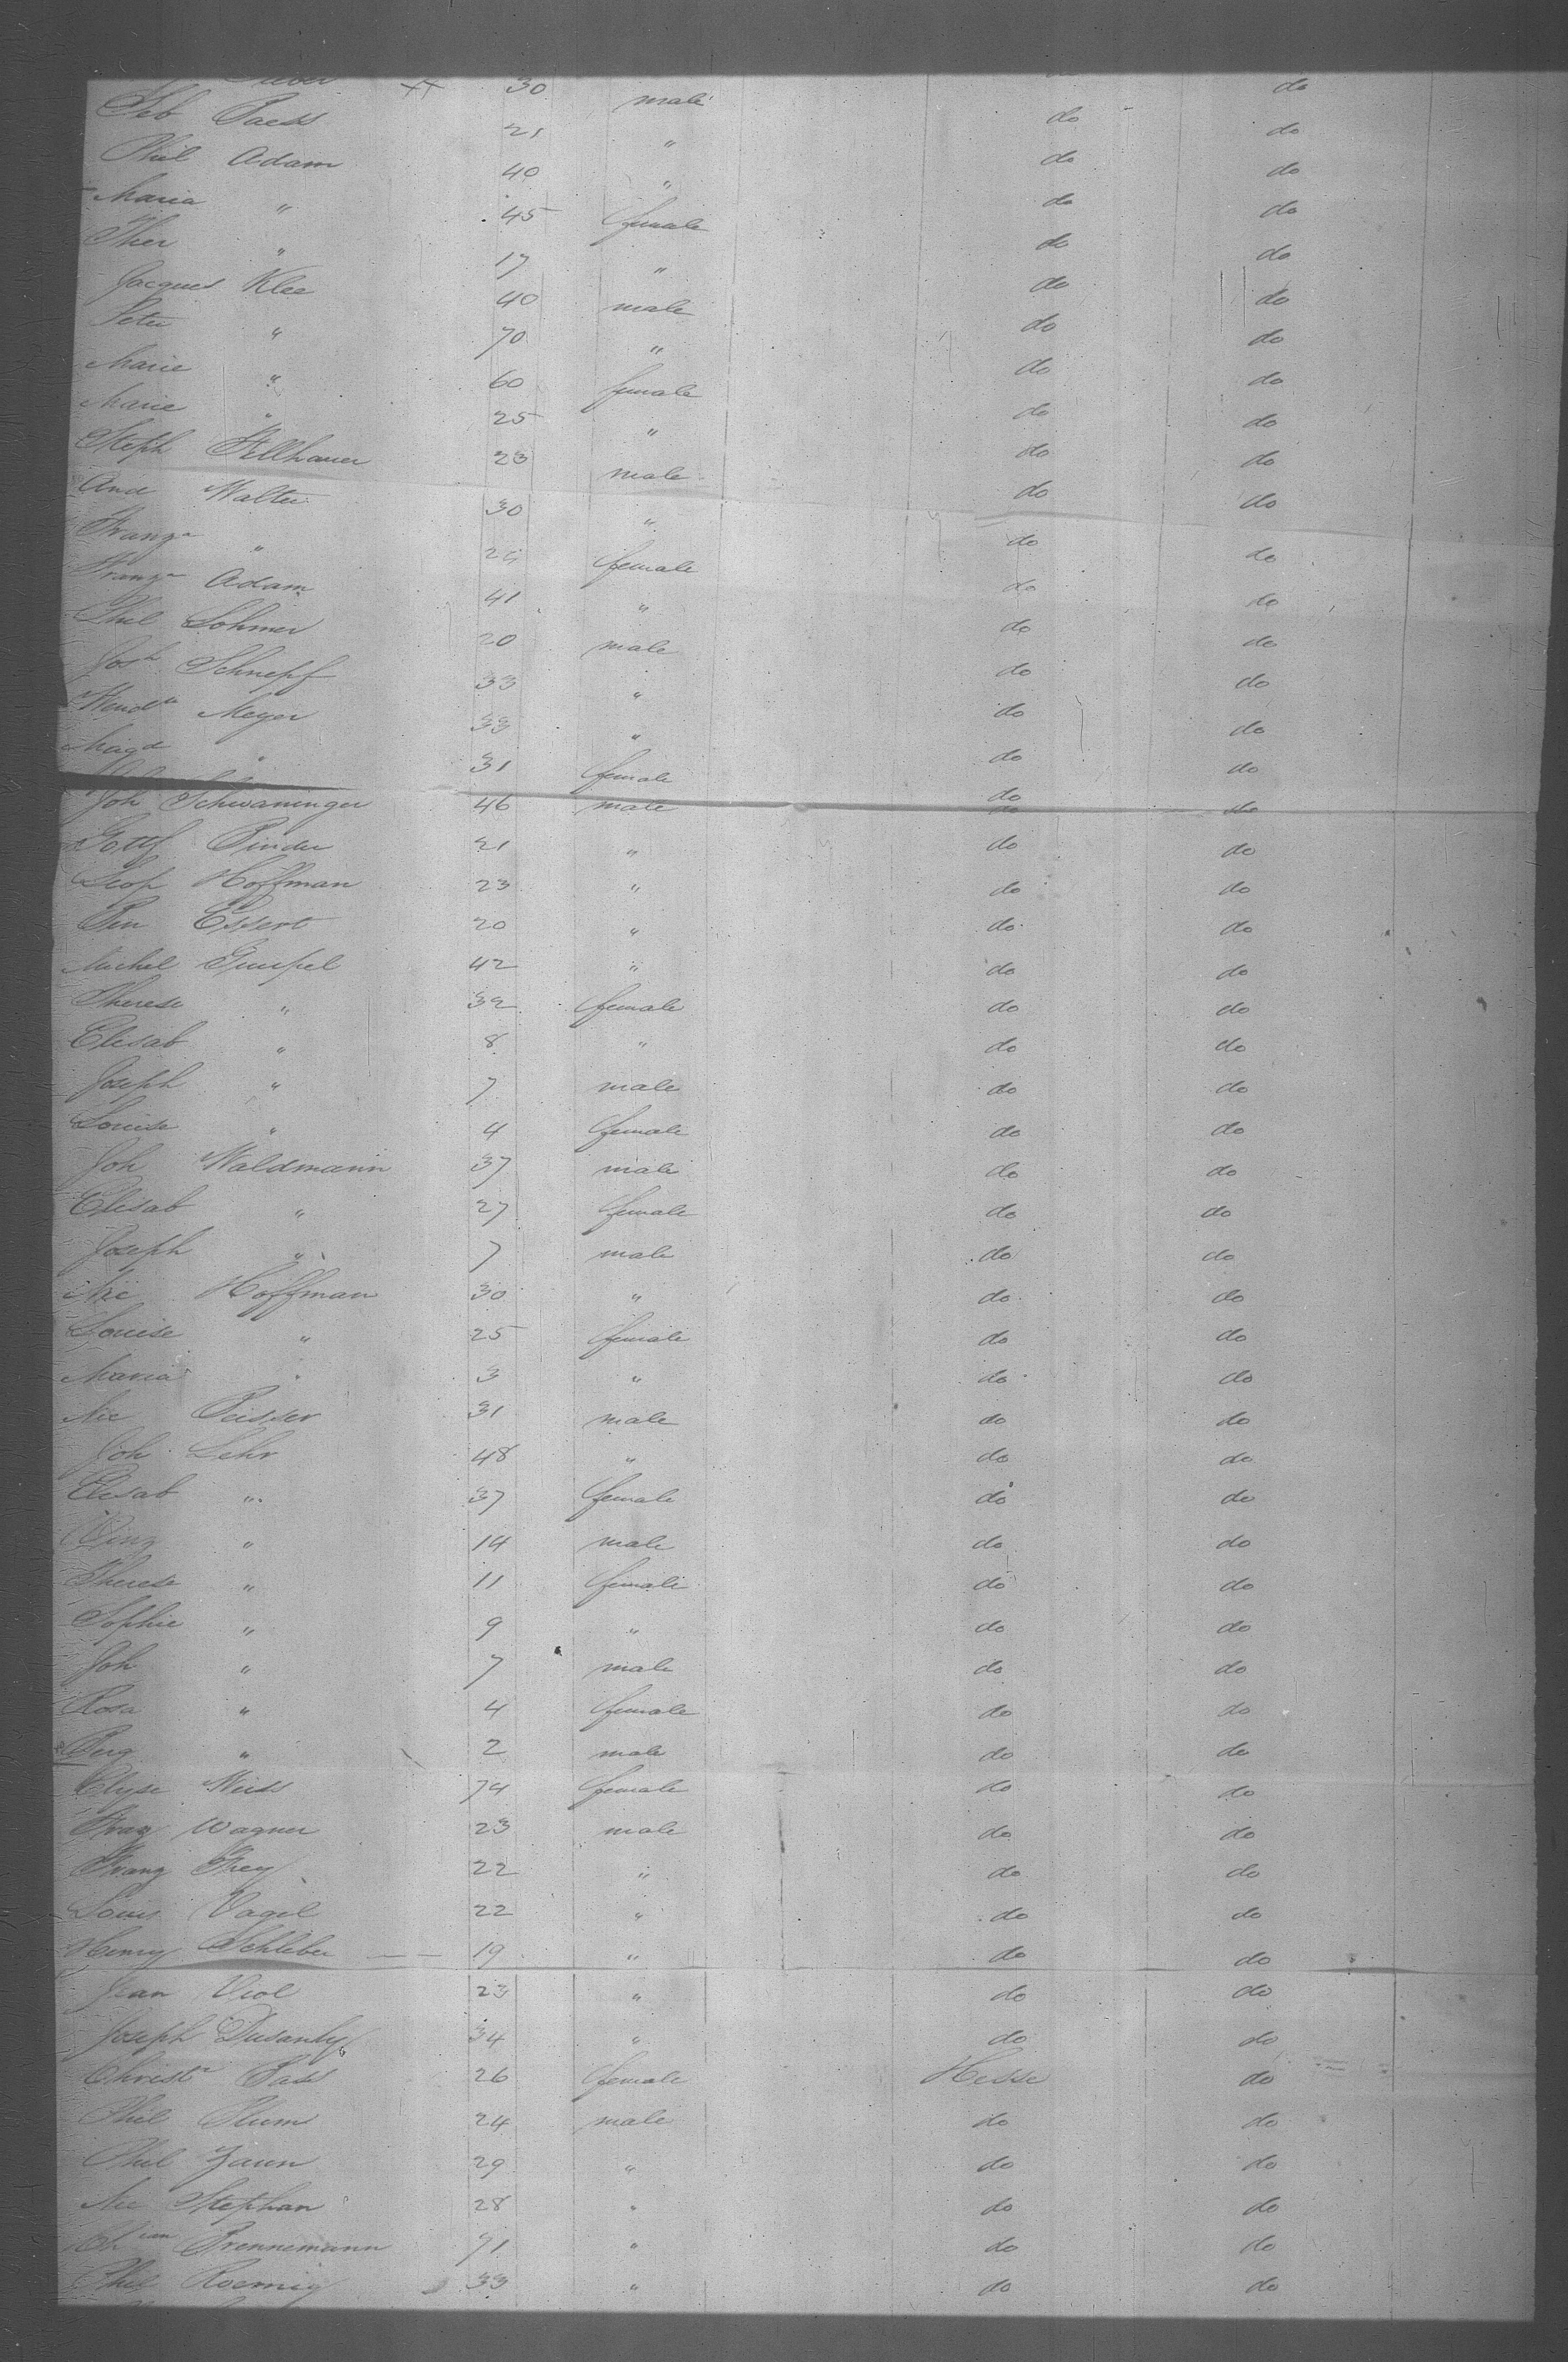 30 male do
Seb Paess 21 " do do
Phil Adam 40 " do do
Maria " 45 female do do
Ther " 17 " do do
Jacques Klee 40 male do do
Peter " 70 " do do
Marie " 60 female do do
Marie " 25 " do do
Steph Fellhauer 23 male do do
And Walter 30 " do do
Franza " 24 female do do
Franza Adam 41 " do do
Phil Sohmer 20 male do do
Josh Schnepf 33 " do do
Wendln Meyer 33 " do do
Magd " 31 female do do
do
Joh Schwaninger 46 male do do
Gottf Binder 21 " do do
Leop Hoffman 23 " do do
Ben Essert 20 " do do
Michel Gumpel 42 " do do
Therese " 32 female do do
Elisab " 8 " do do
Joseph " 7 male do do
Louise " 4 female do do
Joh Waldmann 37 male do do
Elisab " 27 female do do
Joseph " 7 male do do
Nic Hoffman 30 " do do
Louise " 25 female do do
Maria " 3 " do do
Nic Reisser 31 male do do
Joh Lehr 48 " do do
Elisab " 37 female do do
" 14 male do do
Therese " 11 female do do
Sophie " 9 " do do
Joh " 7 male do do
Rosa " 4 female do do
" 2 male do do
Elyse Weiss 74 female do do
Franz Wagner 23 male do do
Franz Frey 22 " do do
Louis Vagel 22 " do do
Henry Schleber 19 " do do
Jean Viol 23 " do do
Joseph 34 " do do
Christa Pass 26 female Hesse do
Phil Blum 24 male do do
Phil Zaun 29 " do do
Nic Stephan 28 " do do
Chian Brennemann 71 " do do
Phil Roemig 33 " do do